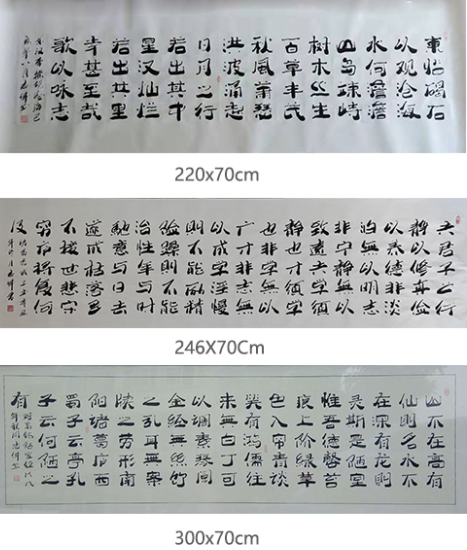 東临碣石
以观沧海
水何澹澹
山岛竦峙
树木丛生
百草丰茂
秋風萧瑟
洪波涌起
日月之行
若出其中
星汉灿烂
若出其里
幸甚至哉
歌以咏志
220x70cm
夫君子之行
静以修身俭
以养德非淡
泊無以明志
非宁静無以
致遠夫学须
静也才须学
也非学無以
广才非志無
以成学淫慢
則不能励精
险躁則不能
治性年与时
馳意与日去
遂成枯落多
不接世悲守
穷庐将復何
及
246X70Cm
山不在高有
仙則名水不
在深有龙則
灵斯是陋室
惟吾德馨苔
痕上阶绿草
色入帘青谈
笑有鸿儒往
来無白丁可
以调素琴阅
金经無丝竹
之乱耳無案
牍之劳形南
阳诸葛庐西
蜀子云亭孔
子云何陋之
有
300x70cm